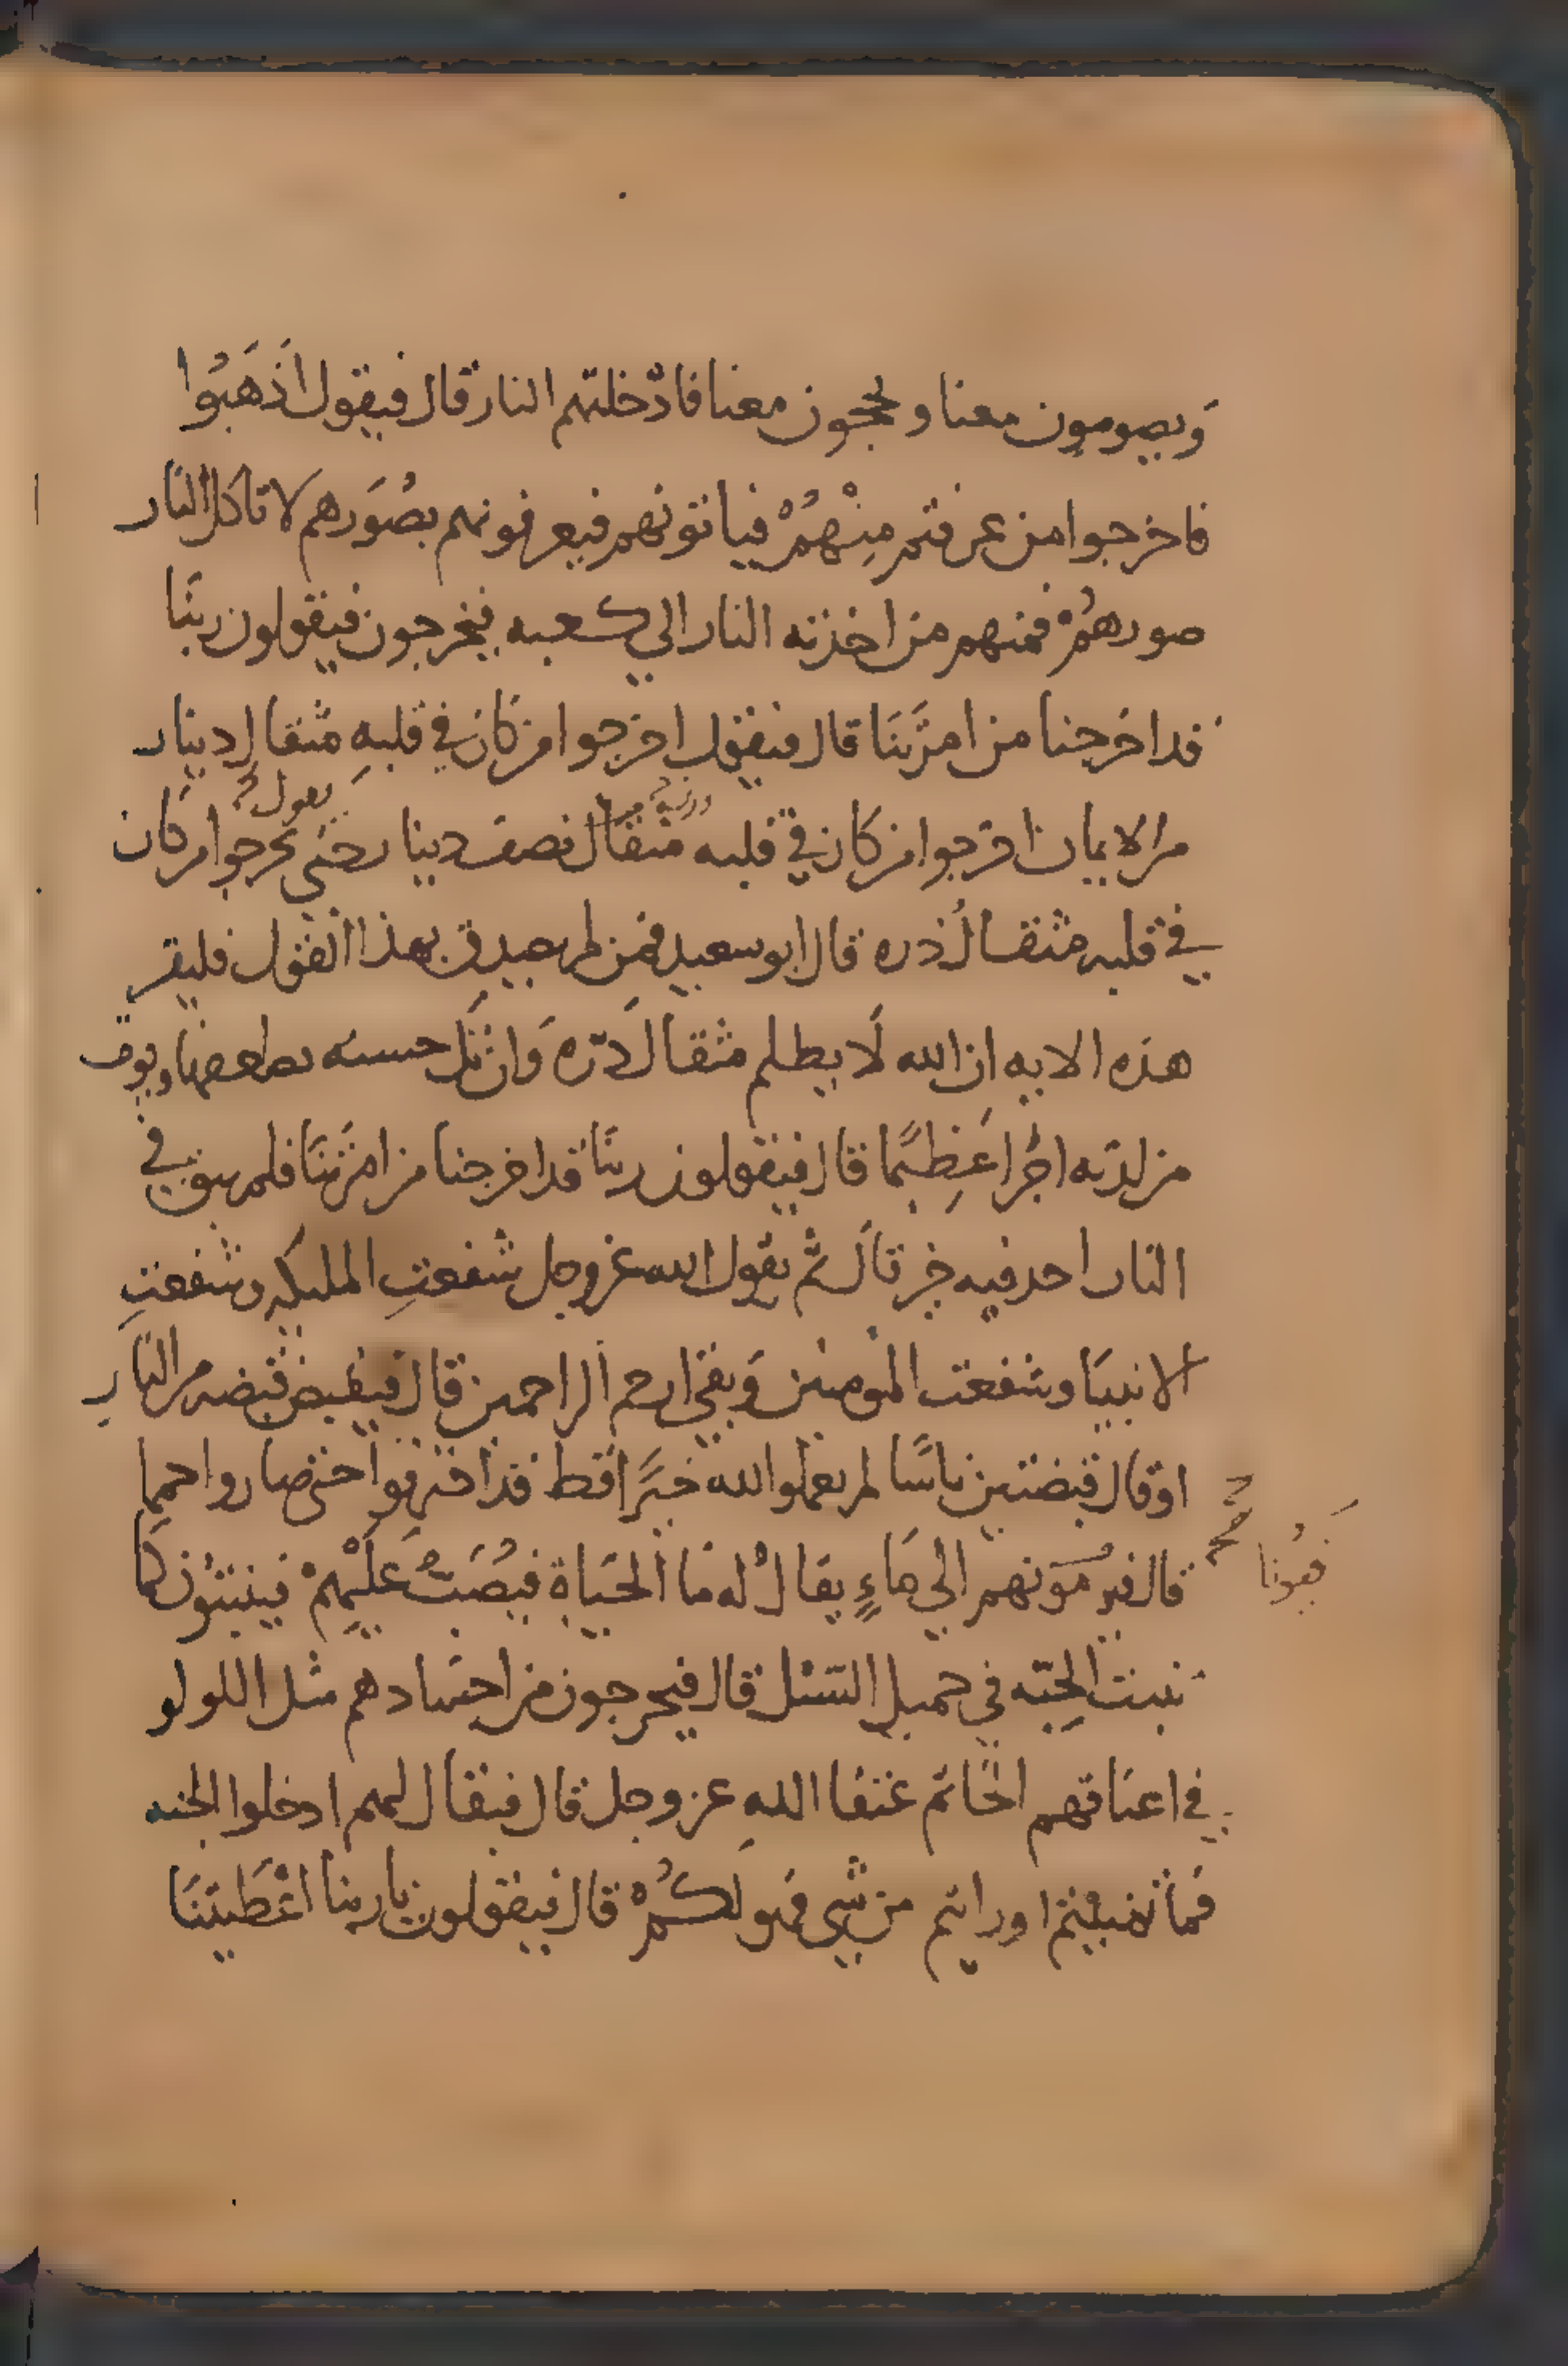 وَيصومون معنا ويحجون معنا فادّخلتهم النار قال فيقول اذهَبُوا
فاخرجوا من عرفتم مِنْهُمْ فياتونهم فيعرفونهم بصُوَرهم لا تاكل النار
صورهُمْ فمنهم من اخذته النار الي كعبه فيخرجون فيقولون ربنَا
قد اخرجنا من امرْتَنَا قال فيقول اخرجوا من كان في قلبهِ مثقال دينار
من الايمان اخرجوا من كان في قلبه مثقال نصف دينار حتي يخرجوا من كان
يقول
في قلبه مثقال ذره قال ابو سعيد فمن لم يصدق بهذا القول فليقر
هذه الايه ان الله لَا يظلم مثقال ذرّه وَان تك حسنه يضاعفها ويوت
من لدنه اجرا عَظِيمًا قال فيقولون ربنَا قد اخرجنا من امرْتنَا فلم يبق في
النار احد فيه خير قال ثم يقول الله عز وجل شفعتِ المليكه وشفعتِ
الانبيَا وشفعت المومنين وَبقي ارحم الراحمين قال فيقبض قبضه من النار
او قال قبضتين ناسًا لم يعملوا لله خيرًا قط قد احترقوا حتى صاروا حمما
قال فيرمونهم الي مَاءٍ يقال له مَا الحَيَاة فيُصَبُّ عَلَيْهِمْ فينبتُون كما
فيُوتا
تنبت الحِبّه في حميل السّيل قال فيخرجون من اجسادهم مثل اللولو
في اعناقهم الخَاتم عتقا اللهِ عز وجل قال فيقال لهم ادخلوا الجنه
فمَا تمنيْتم او رايتم من شي فهو لَكُمْ قال فيقولون يا ربنا اعْطَيتنَا